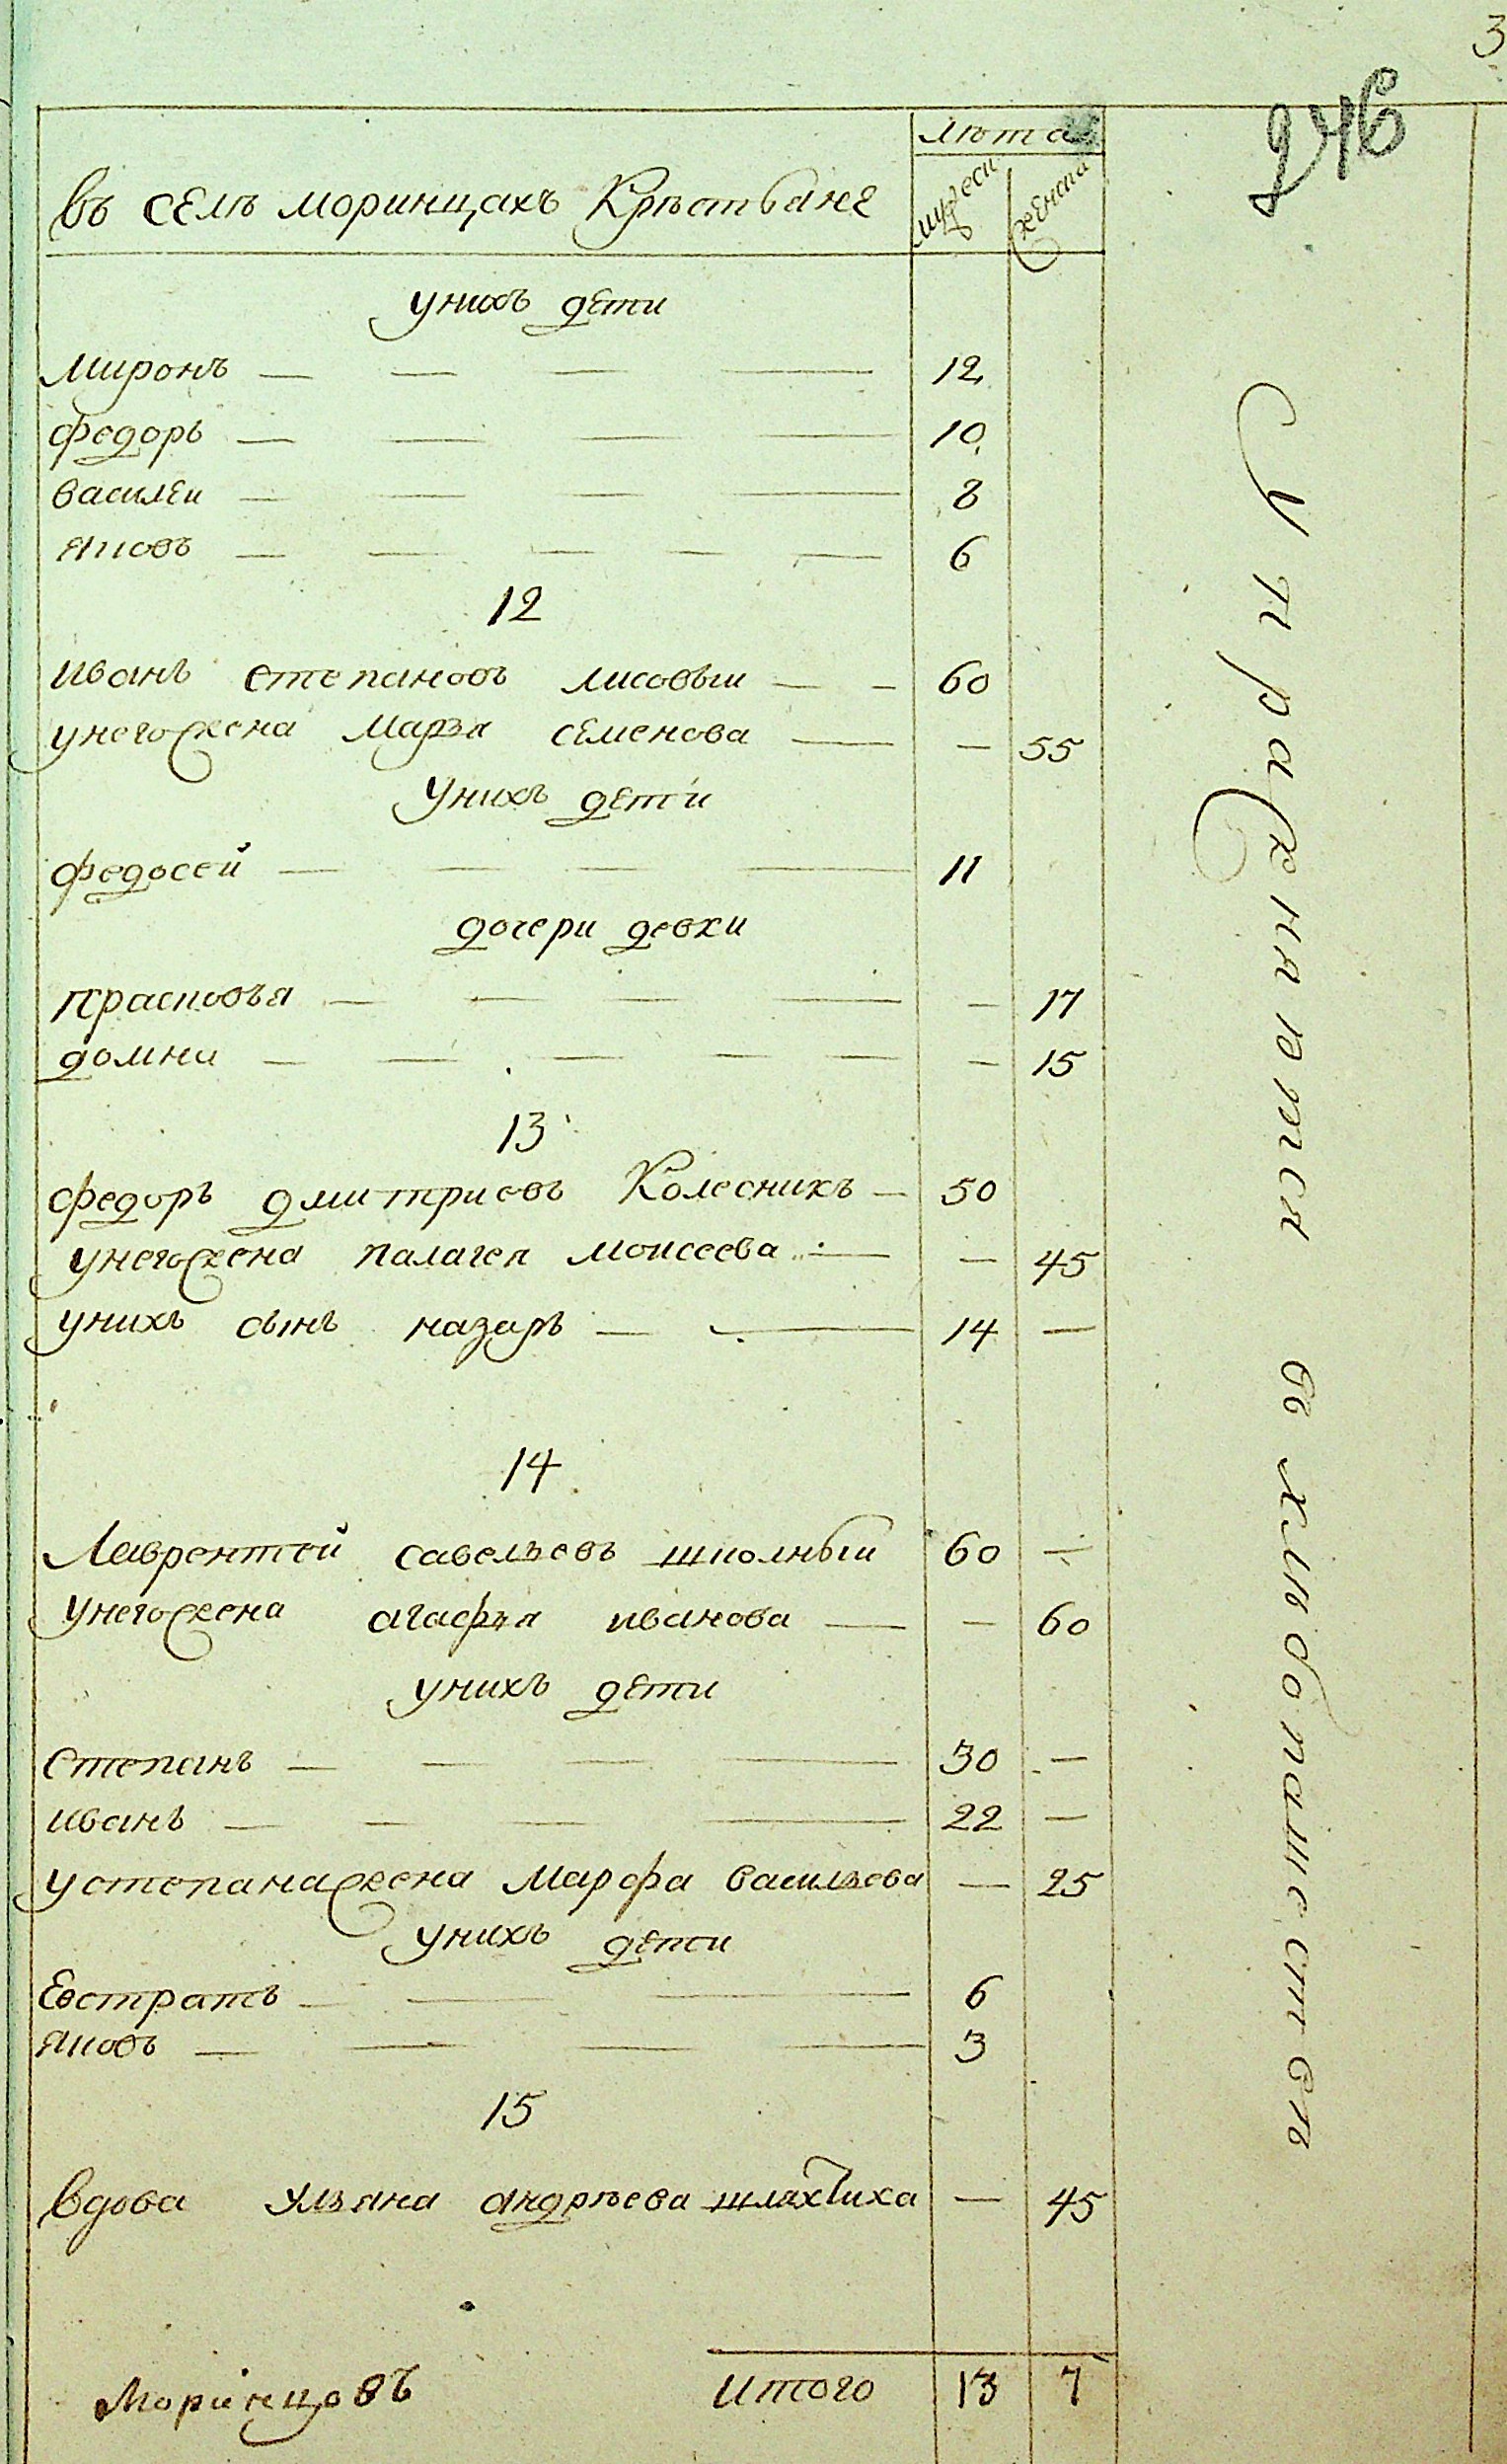 3
246
Лѣта
въ селѣ моринцахъ Крѣстьяне
мужеск
женска
унихъ дети
миронъ — — — — 12
федоръ — — — — 10
василеи — — — — 8
яковъ — — — — — 6
12
иванъ степановъ лисовыи — — 60
унего жена марья семенова — — 55
унихъ дети
федосей — — — — 11
дочери девки
прасковья — — — — — 17
домна — — — — — — 15
13
федоръ дмитриевъ Колесникъ — 50
унего жена палагея моисеева — — 45
унихъ сынъ назаръ — — 14 —
14
Лаврентей савельевъ школныи 60 —
унего жена агафья иванова — — 60
унихъ дети
степанъ — — — — 30 —
иванъ — — — — 22 —
устепана жена марфа васильева — 25
унихъ дети
Евстратъ — — — 6
яковъ — — — — 3
15
вдова ульяна андрѣева шляхтиха — 45
итого 13 7
Моринцовъ
Упражняется в хлѣбопашествѣ